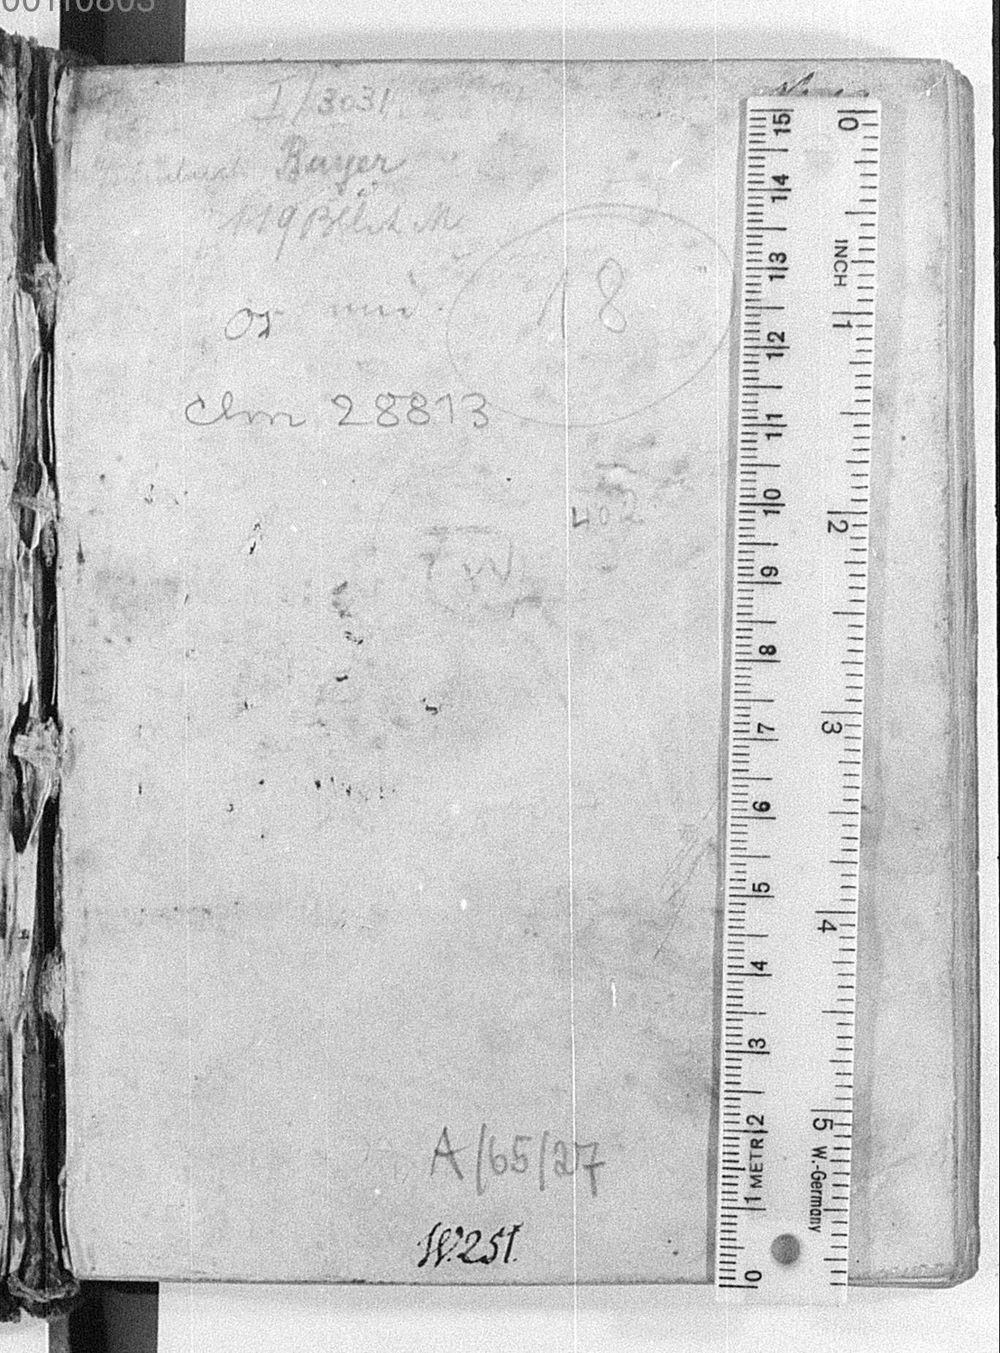 00110803
I/3031
Bayer
18
clm 28813
402
A/65/27
W.251.
0 INCH 1 2 3 4 5 W.-Germany
15 14 13 12 11 10 9 8 7 6 5 4 3 2 METR 1 0